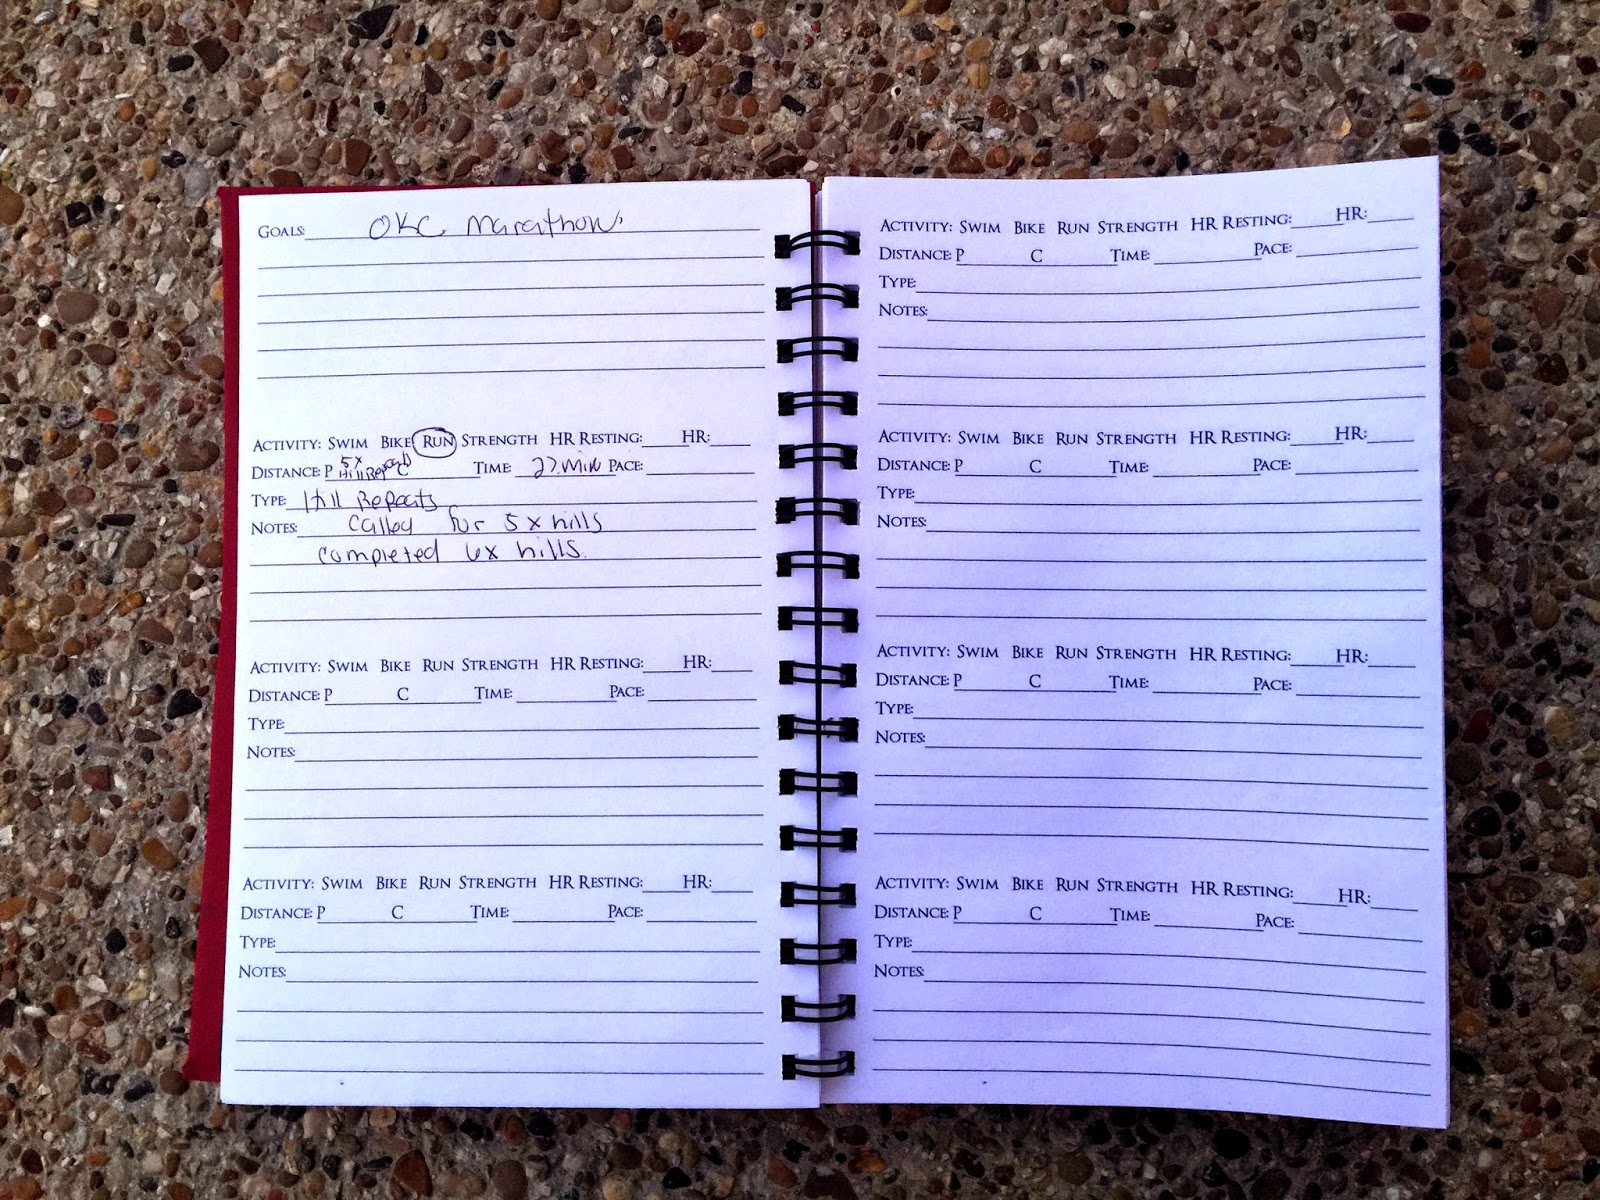 GOALS: OKC Marathon
ACTIVITY: SWIM BIKE RUN STRENGTH HR RESTING: HR:
DISTANCE: P 5x Hill Repeats C TIME: 27 min PACE:
TYPE: Hill Repeats
NOTES: Called for 5x hills
completed 6x hills.
ACTIVITY: SWIM BIKE RUN STRENGTH HR RESTING: HR:
DISTANCE: P C TIME: PACE:
TYPE:
NOTES:
ACTIVITY: SWIM BIKE RUN STRENGTH HR RESTING: HR:
DISTANCE: P C TIME: PACE:
TYPE:
NOTES:
ACTIVITY: SWIM BIKE RUN STRENGTH HR RESTING: HR:
DISTANCE: P C TIME: PACE:
TYPE:
NOTES:
ACTIVITY: SWIM BIKE RUN STRENGTH HR RESTING: HR:
DISTANCE: P C TIME: PACE:
TYPE:
NOTES:
ACTIVITY: SWIM BIKE RUN STRENGTH HR RESTING: HR:
DISTANCE: P C TIME: PACE:
TYPE:
NOTES:
ACTIVITY: SWIM BIKE RUN STRENGTH HR RESTING: HR:
DISTANCE: P C TIME: PACE:
TYPE:
NOTES: